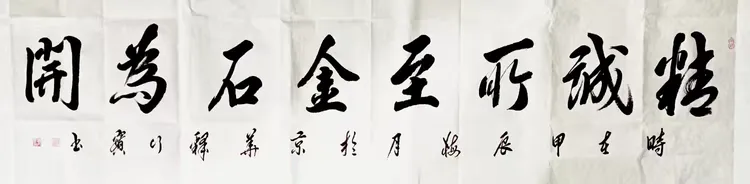 精誠所至金石為開
時在甲辰梅月於京華釋行寶書